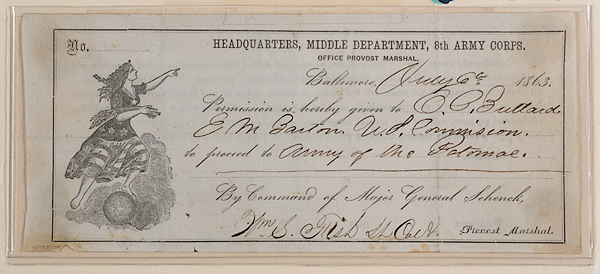 No.
HEADQUARTERS, MIDDLE DEPARTMENT, 8th ARMY CORPS.
OFFICE PROVOST MARSHAL.
Baltimore, July 6th 1863.
Permission is hereby given to C. C. Bullard
E M Barton. U. S. Commision.
to proceed to Army of the Potomac.
By Command of Major General Schenck,
Wm. S. Fish Lt Col &
Provost Marshal.